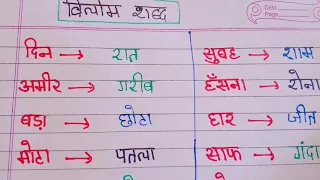 विलोम शब्द
Date
Page
दिन → रात
सुबह → शाम
अमीर → गरीब
हँसना → रोना
बड़ा → छोटा
हार → जीत
मोटा → पतला
साफ → गंदा